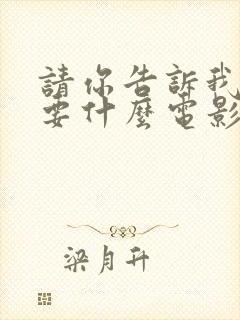 請你告訴我
要什麼電影
梁月升